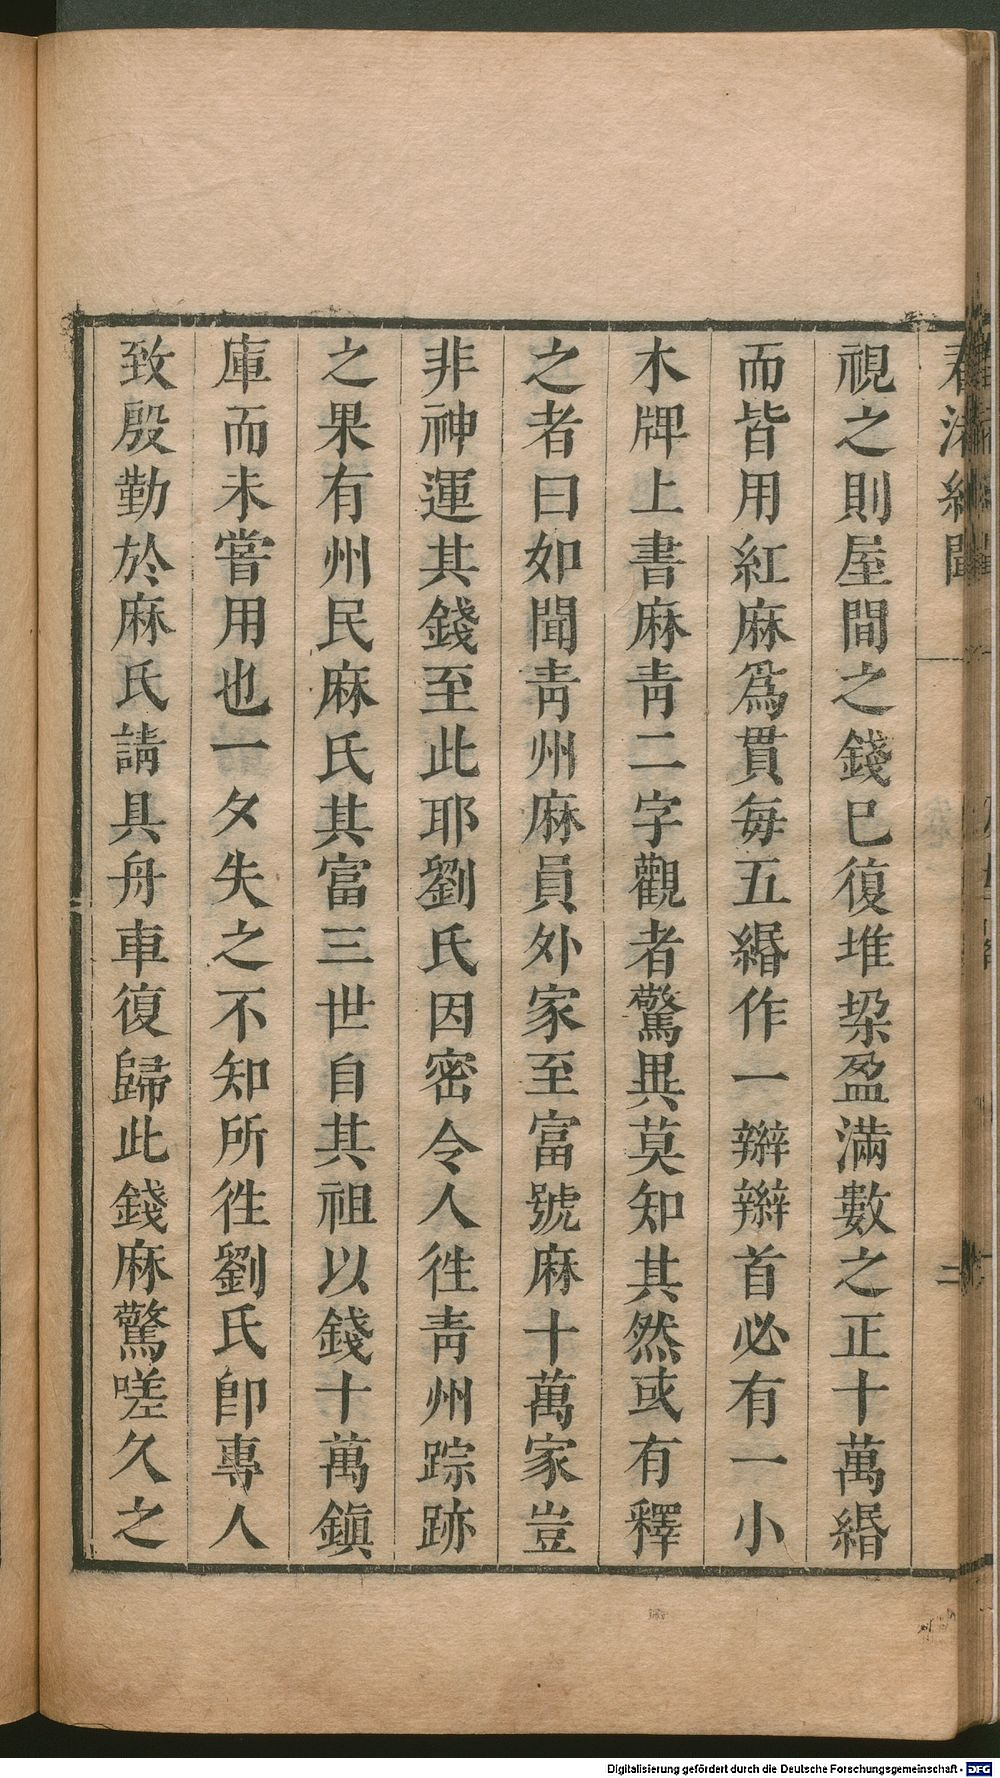 視之則屋間之錢巳復堆垜盈滿數之正十萬緡
而皆用紅麻爲貫每五緡作一辮辮首必有一小
木牌上書麻青二字觀者驚異莫知其然或有釋
之者曰如聞青州麻員外家至富號麻十萬家豈
非神運其錢至此耶劉氏因密令人徃青州踪跡
之果有州民麻氏其富三世自其祖以錢十萬鎭
庫而未嘗用也一夕失之不知所徃劉氏卽專人
致殷勤於麻氏請具舟車復歸此錢麻驚嗟久之
Digitalisierung gefördert durch die Deutsche Forschungsgemeinschaft - DFG